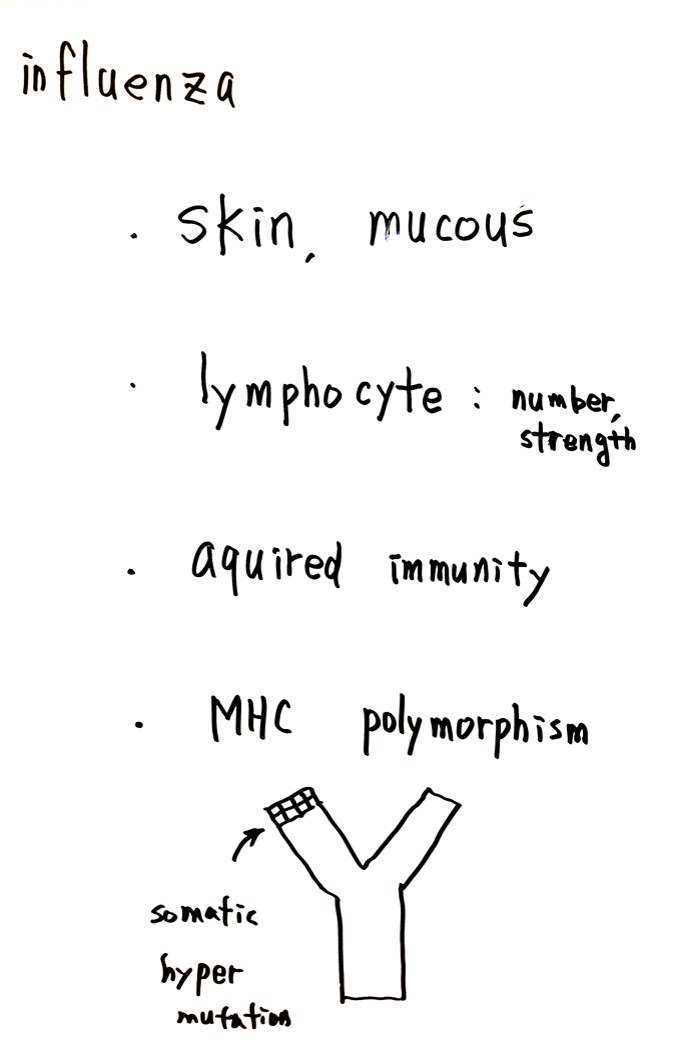 influenza
· skin, mucous
· lymphocyte : number,
strength
· aquired immunity
· MHC polymorphism
somatic
hyper
mutation